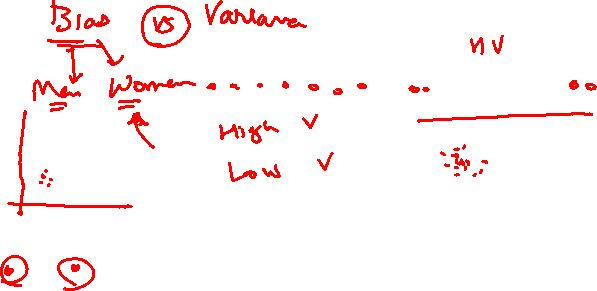 Bias vs Variance
HV
Men Women
High V
Low V